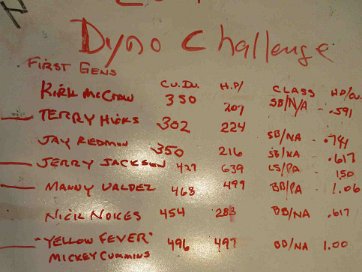 Dyno Challenge
FIRST GENS
CU.IN. H.P/ CLASS HP/CU.
KIRK McCRAW 350 207 SB/N/A .591
TERRY HICKS 302 224 SB/NA .741
JAY REDMON 350 216 SB/NA .617
JERRY JACKSON 427 639 150
MANNY VALDEZ 468 499 BB/PA 1.06
NICK NOKES 454 BB/NA .617
"YELLOW FEVER" 496 497 BB/NA 1.00
MICKEY CUMMINS